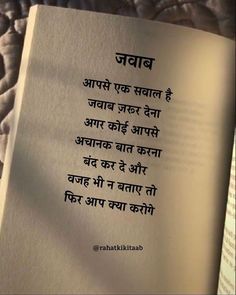 जवाब
आपसे एक सवाल है
जवाब ज़रूर देना
अगर कोई आपसे
अचानक बात करना
बंद कर दे और
वजह भी न बताए तो
फिर आप क्या करोगे
@rahatkikitaab